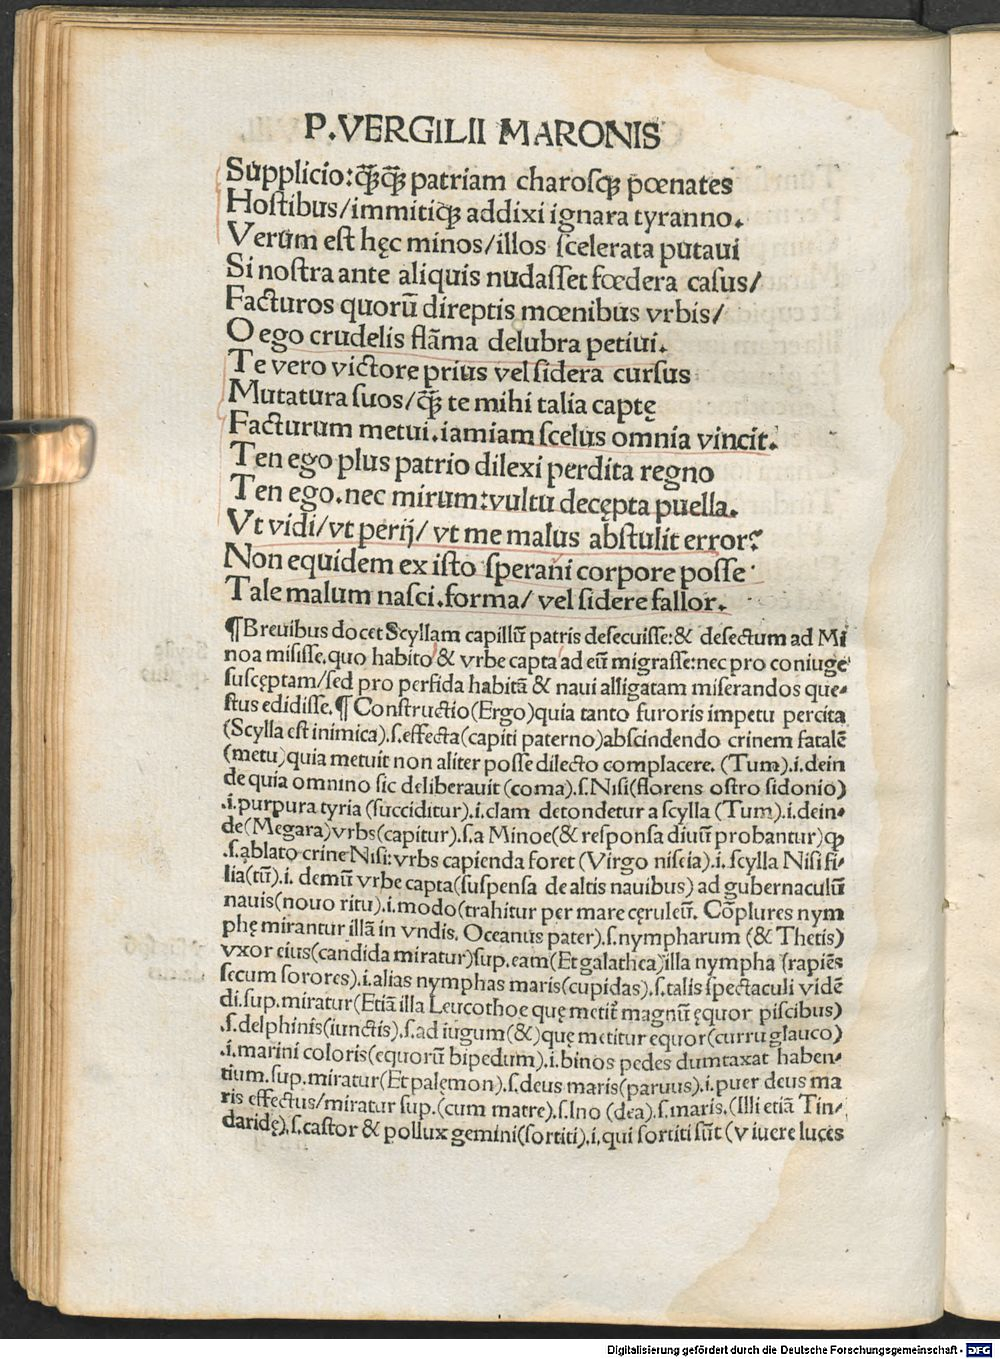 P.VERGILII MARONIS
Supplicio:qͣ̃qͣ̃ patriam charosqꝫ pœnates
Hostibus/immitiqꝫ addixi ignara tyranno.
Verum est hęc minos/illos scelerata putaui
Si nostra ante aliquis nudasset fœdera casus/
Facturos quorũ direptis mœnibus vrbis/
O ego crudelis flãma delubra petiui.
Te vero victore prius vel sidera cursus
Mutatura suos/qͣ̃ te mihi talia captę
Facturum metui.iamiam scelus omnia vincit.
Ten ego plus patrio dilexi perdita regno
Ten ego.nec mirum:vultu decępta puella.
Vt vidi/vt perij/ vt me malus abstulit error?
Non equidem ex isto sperani corpore posse
Tale malum nasci.forma/ vel sidere fallor.
¶Breuibus docet Scyllam capillũ patris desecuisse:& desectum ad Mi
noa misisse.quo habito & vrbe capta ad eũ migrasse:nec pro coniuge
suscęptam/sed pro perfida habitã & naui alligatam miserandos que-
stus edidisse.¶ Constructio(Ergo)quia tanto furoris impetu percita
(Scylla est inimica).s.effecta(capiti paterno)abscindendo crinem fatalẽ
(metu)quia metuit non aliter posse dilecto complacere. (Tum).i.dein
de quia omnino sic deliberauit (coma).s.Nisi(florens ostro sidonio)
.i.purpura tyria (succiditur).i.clam detondetur a scylla (Tum).i.dein-
de(Megara)vrbs(capitur).s.a Minoe(& responsa diuũ probantur)qꝫ
.s.ablato crine Nisi:vrbs capienda foret (Virgo niseia).i.scylla Nisi fi-
lia(tũ).i. demũ vrbe capta(suspensa de altis nauibus) ad gubernaculũ
nauis(nouo ritu).i.modo(trahitur per mare cęruleũ. Cõplures nym
phę mirantur illã in vndis. Oceanus pater).s.nympharum (& Thetis)
vxor eius(candida miratur)sup.eam(Et galathea)illa nympha (rapiẽs
secum sorores).i.alias nymphas maris(cupidas).s.talis spectaculi vidẽ
di.sup.miratur(Etiã illa Leucothoe quę metit̃ magnũ ęquor piscibus)
.s.delphinis(iunctis).s.ad iugum(&)quę metitur equor(curru glauco)
.i.marini coloris(equorũ bipedum).i.binos pedes dumtaxat haben-
tium.sup.miratur(Et palęmon).s.deus maris(paruus).i.puer deus ma
ris effectus/miratur sup.(cum matre).s.Ino (dea).s.maris.(Illi etiã Tin-
daridę).s.castor & pollux gemini(sortiti).i.qui sortiti sũt (viuere luces
Digitalisierung gefördert durch die Deutsche Forschungsgemeinschaft - DFG